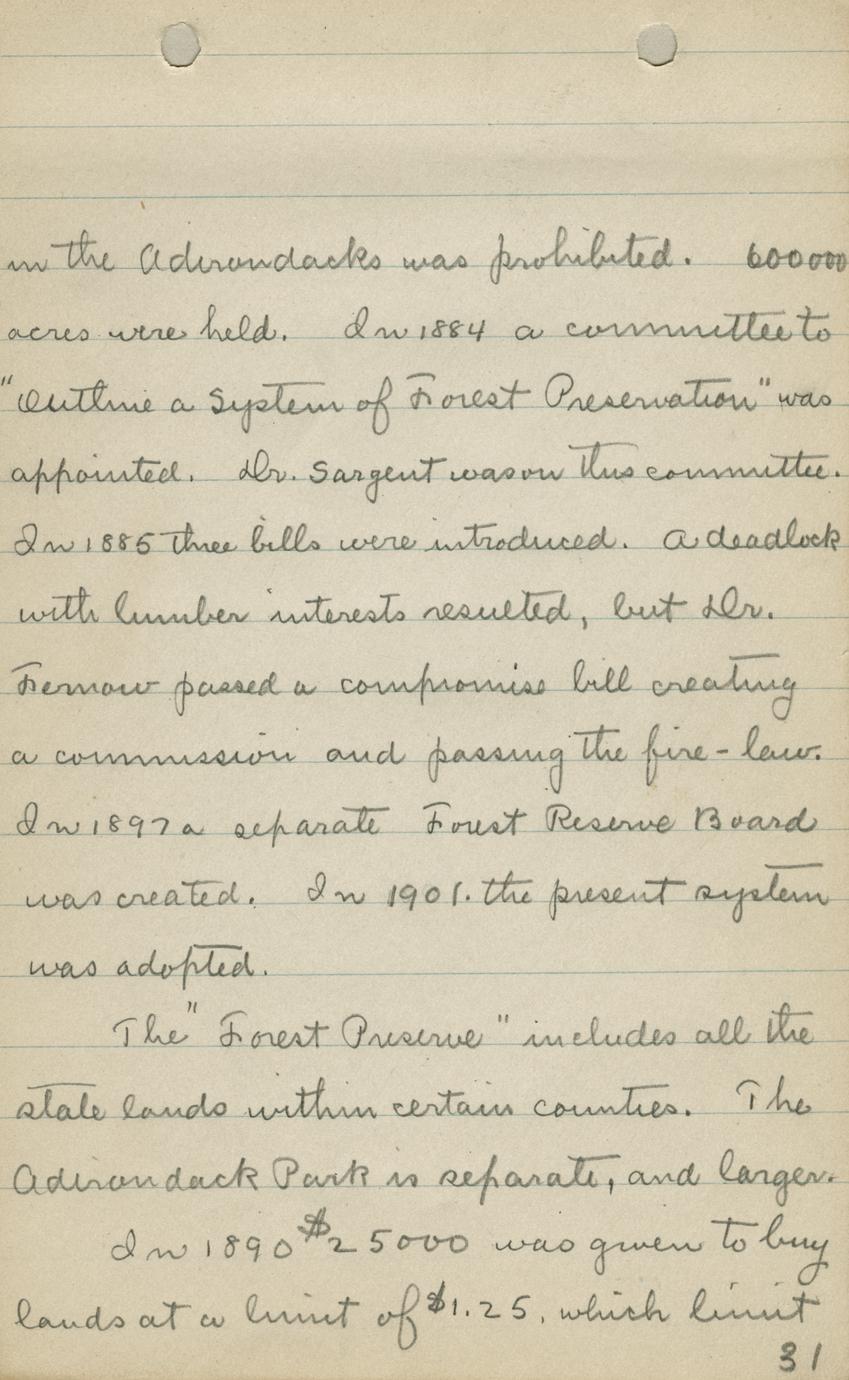 in the Adirondacks was prohibited. 600000
acres were held. In 1884 a committee to
"Outline a System of Forest Preservation" was
appointed. Dr. Sargent was on this committee.
In 1885 three bills were introduced. A deadlock
with lumber interests resulted, but Dr.
Fernow passed a compromise bill creating
a commission and passing the fire-law.
In 1897 a separate Forest Reserve Board
was created. In 1901. the present system
was adopted.
The "Forest Preserve" includes all the
state lands within certain counties. The
Adirondack Park is separate, and larger.
In 1890 $25000 was given to buy
lands at a limit of $1.25, which limit
31